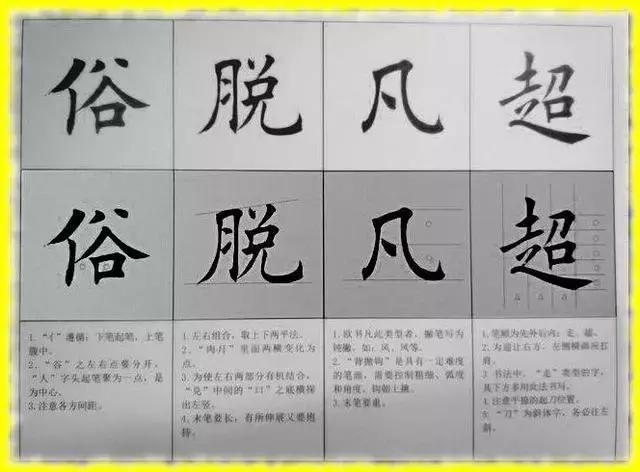 俗 脱 凡 超
俗 脱 凡 超
1. “亻”遵循：下笔起笔，上笔
腹中。
2. “谷”之左右点要分开，
“人”字头起笔聚为一点，是
为中心。
3.注意各方间距。
1.左右组合，取上下两平法。
2. “肉月”里面两横变化为
点。
3.为使左右两部分有机结合，
“兑”中间的“口”之底横探
出左竖。
4.末笔要长，有所伸展又要抱
持。
1.欧书凡此类型者，撇笔写为
钝撇。如：风、凤等。
2. “背抛钩”是具有一定难度
的笔画，需要控制粗细、弧度
和角度，钩朝上挑。
3.末笔要重。
1.笔顺为先外后内：走、
2.为避让右方，左侧横画应扛
肩。
3. 书法中，“走”类型的字，
其下方多用此法书写。
4.注意平捺的起刀位置。
5. “刀”为斜体字，务必往左
斜。